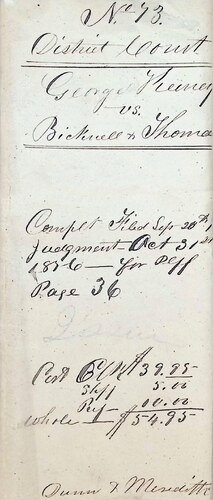 No 73.
District Court
George Keeney
vs.
Bicknell & Thomas
Complt Filed Sep 20th
Judgment Oct 31st
1856 — for Plff
Page 36
Cost $39.95
Shff 5.00
10.00
Whole — $54.95
Dunn & Meredith